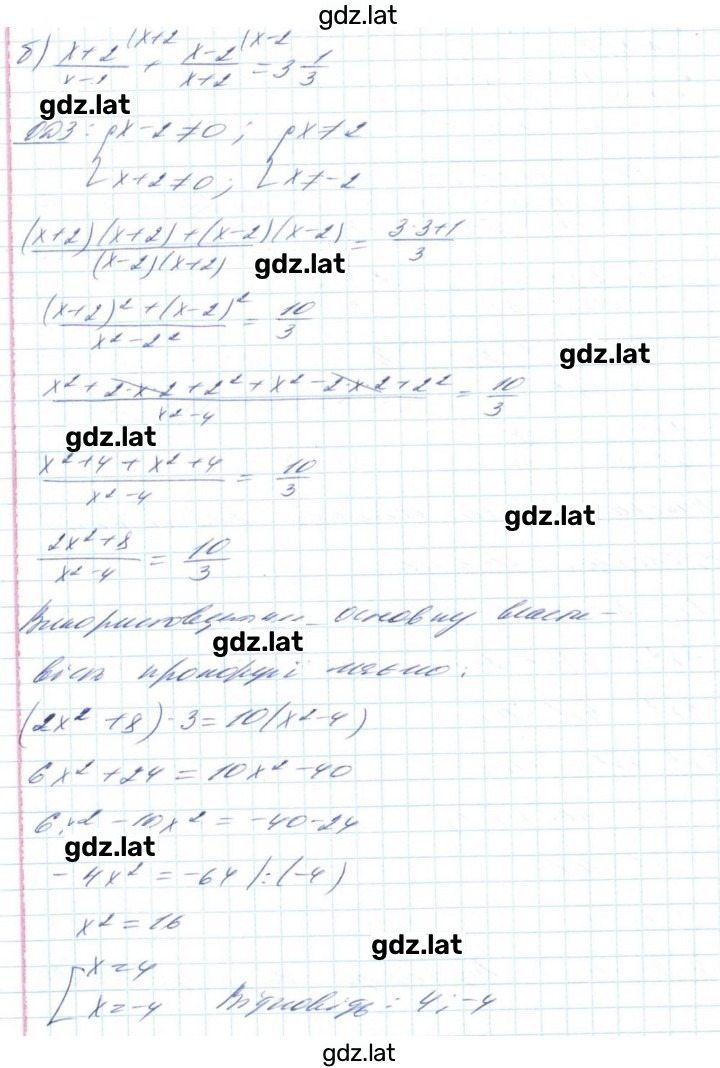 gdz.lat
б) (x+2)/(x-2) (x+2 + (x-2)/(x+2) (x-2 = 3 1/3
gdz.lat
ОДЗ: { x-2≠0; { x≠2
x+2≠0; x≠-2
((x+2)(x+2)+(x-2)(x-2))/((x-2)(x+2)) = (3·3+1)/3
gdz.lat
((x+2)²+(x-2)²)/(x²-2²) = 10/3
gdz.lat
(x²+2·x·2+2²+x²-2·x·2+2²)/(x²-4) = 10/3
gdz.lat
(x²+4+x²+4)/(x²-4) = 10/3
gdz.lat
(2x²+8)/(x²-4) = 10/3
Використовуючи основну власти-
gdz.lat
вість пропорції маємо:
(2x²+8)·3=10(x²-4)
6x²+24=10x²-40
6x²-10x²=-40-24
gdz.lat
-4x²=-64 |:(-4)
x²=16
gdz.lat
[ x=4
x=-4 Відповідь: 4; -4
gdz.lat